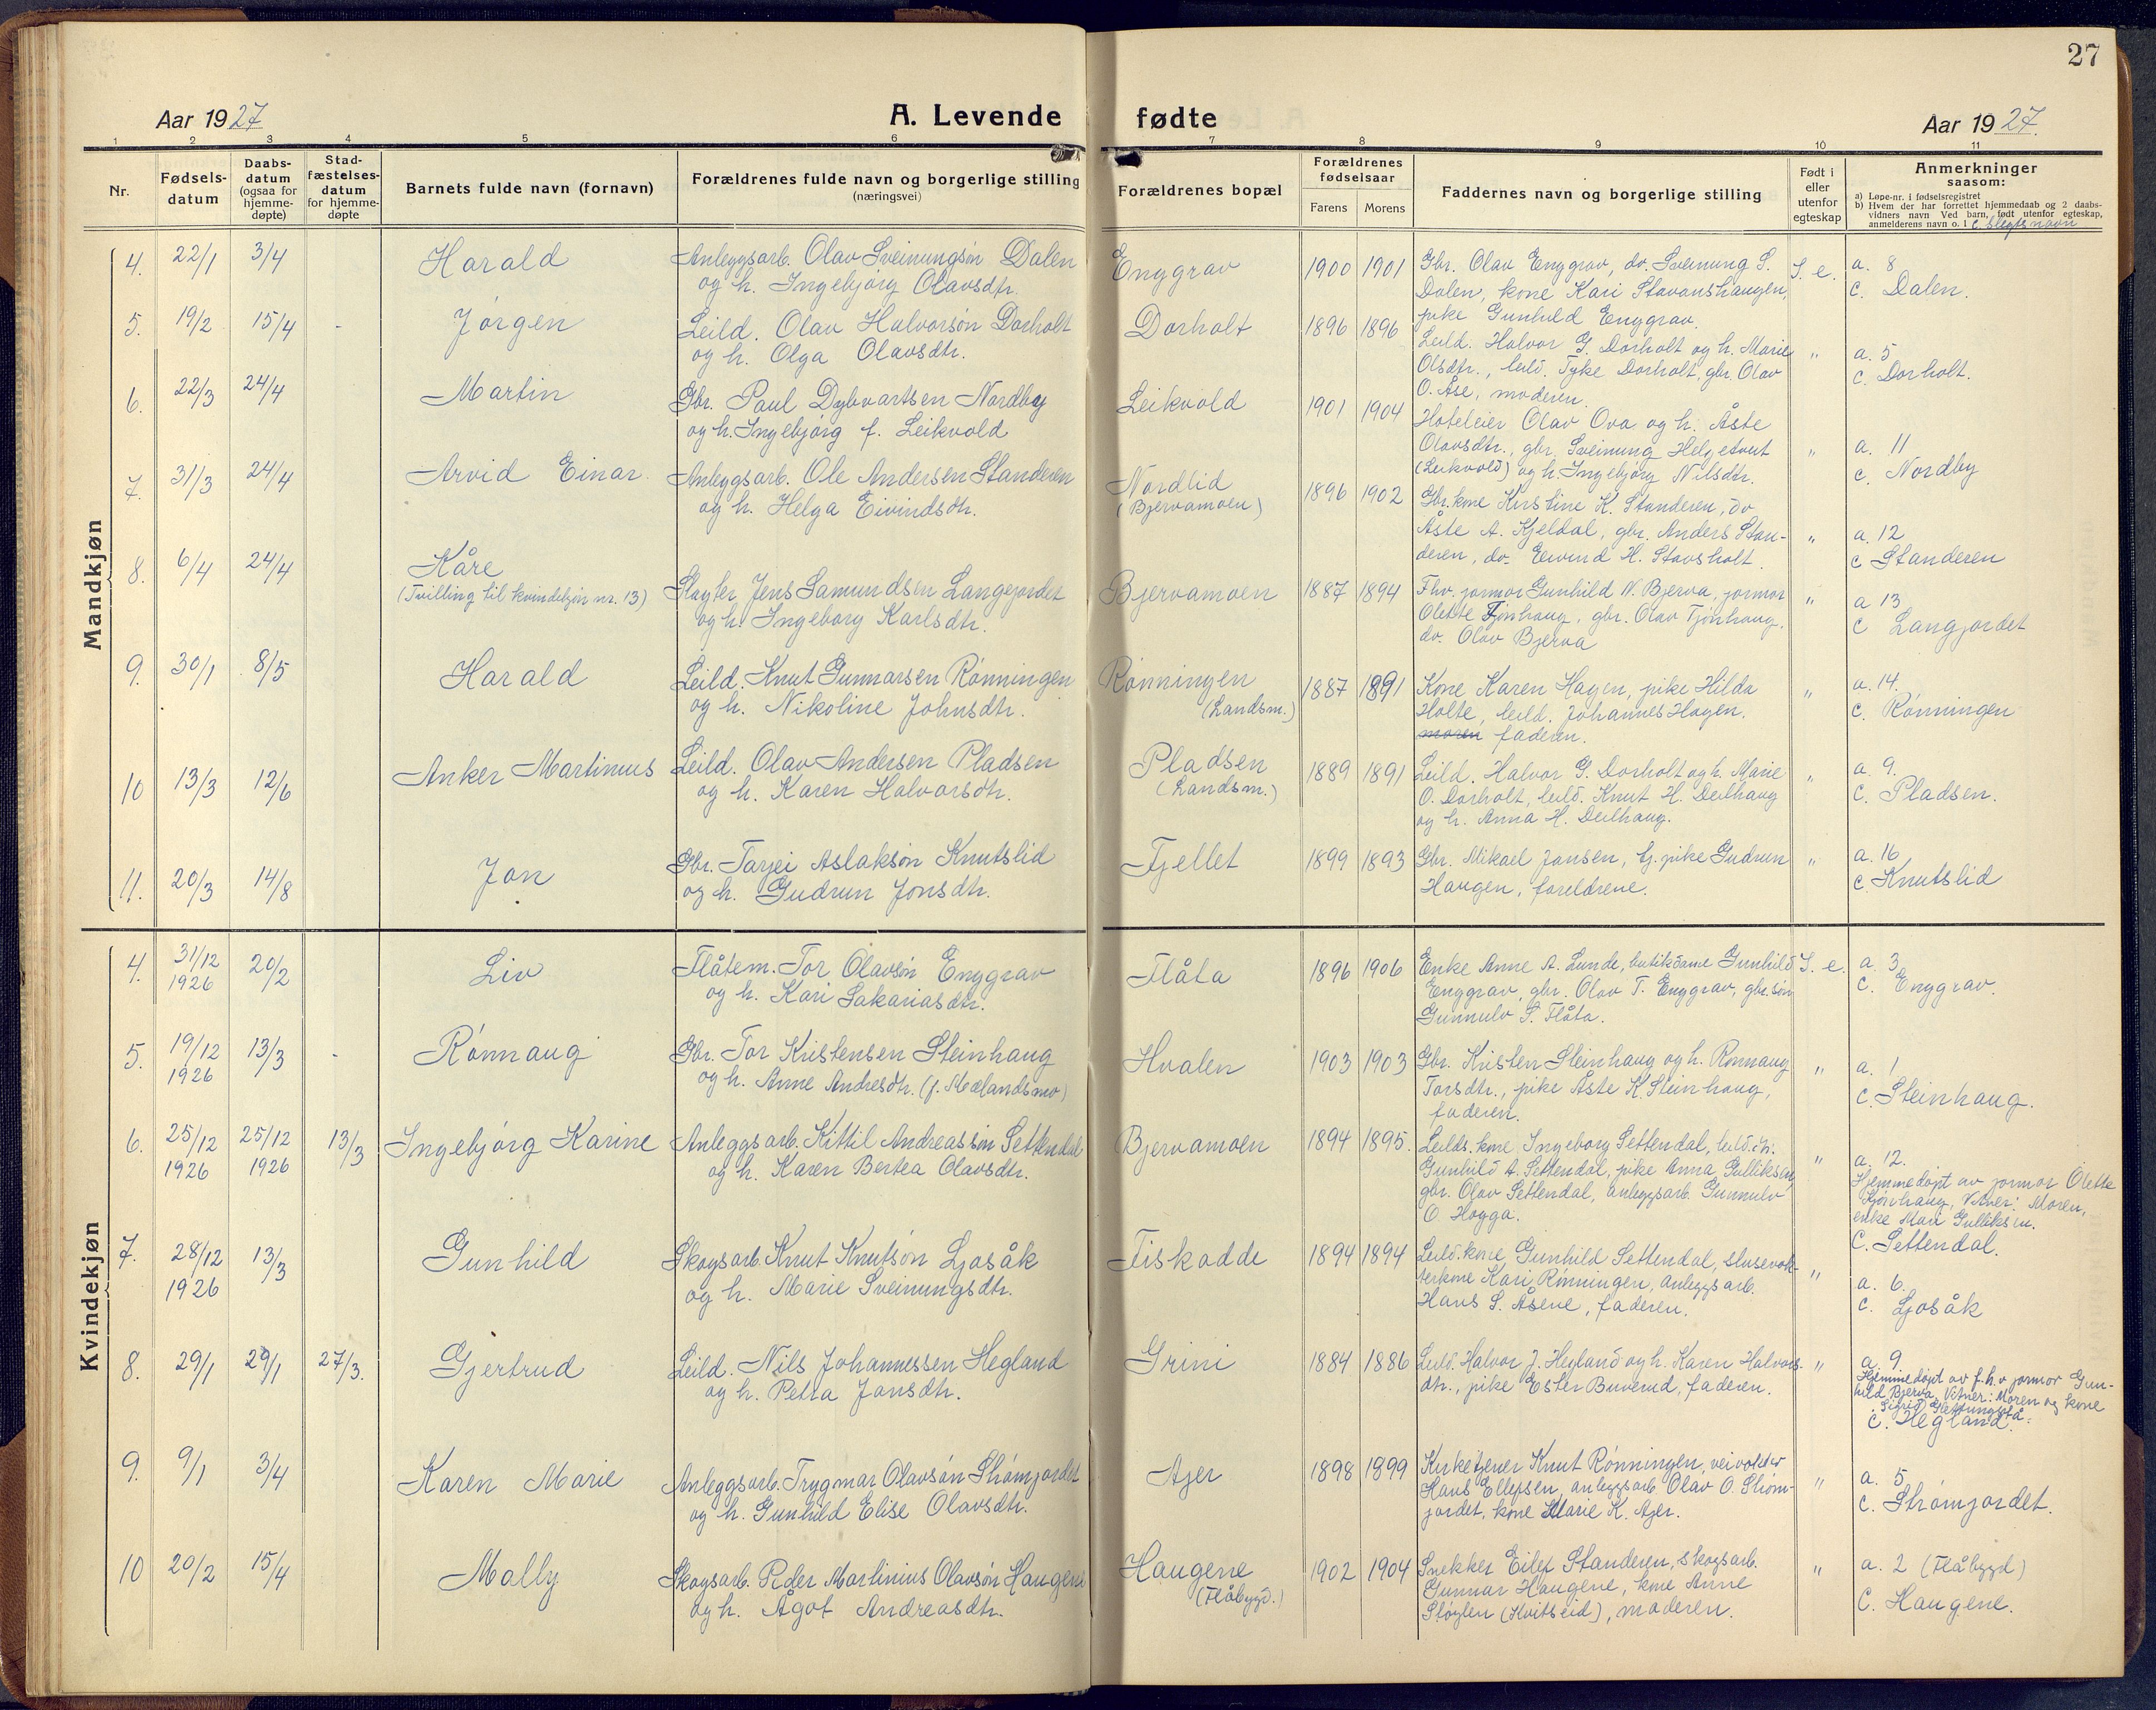 27
Aar 1927
A. Levende fødte
Aar 1927
1 2 3 4 5 6 7 8 9 10 11
Nr.
Fødsels-
datum
Daabs-
datum
(ogsaa for
hjemme-
døpte)
Stad-
fæstelses-
datum
for hjemme-
døpte
Barnets fulde navn (fornavn)
Forældrenes fulde navn og borgerlige stilling
(næringsvei)
Forældrenes bopæl
Forældrenes
fødselsaar
Farens Morens
Faddernes navn og borgerlige stilling
Født i
eller
utenfor
egteskap
Anmerkninger
saasom:
a) Løpe-nr. i fødselsregistret
b) Hvem der har forrettet hjemmedaab og 2 daabs-
vidners navn Ved barn, født utenfor egteskap,
anmelderens navn o. l. c. Slegtsnavn
Mandkjøn
4. 22/1 3/4 Harald
Anleggsarb. Olav Sveinungsøn Dalen
og h. Ingebjørg Olavsdtr.
Enggrav 1900 1901
Gbr. Olav Enggrav, do. Sveinung S.
Dalen, kone Kari Stavanshaugen,
pike Gunhild Enggrav.
I. e.
a. 8
c. Dalen.
5. 19/2 15/4 - Jørgen
Leild. Olav Halvorsøn Dorholt
og h. Olga Olavsdtr.
Dorholt 1896 1896
Leild. Halvor G. Dorholt og h. Marie
Olsdtr., leild. Tyke Dorholt, gbr. Olav
O. Åse, moderen.
"
a. 5
c. Dorholt.
6. 22/3 24/4 Martin
Gbr. Paul Dybvartsen Nordby
og h. Ingebjørg f. Leikvold
Leikvold 1901 1904
Hoteleier Olav Ova og h. Åste
Olavsdtr., gbr. Sveinung Helgetveit
(Leikvold) og h. Ingebjørg Nilsdtr.
"
a. 11
c. Nordby
7. 31/3 24/4 Arvid Einar
Anleggsarb. Ole Andersen Standeren
og h. Helga Eivindsdtr.
Nordlid
(Bjervamoen)
1896 1902
Gbr.kone Kirstine K. Standeren, do
Åste A. Kjeldal, gbr. Anders Stan-
deren, do. Eivind H. Stavsholt.
"
a. 12
c Standeren
8. 6/4 24/4 Kåre
(Tvilling til kvindekjøn nr. 13)
Slagter Jens Samundsen Langejordet
og h. Ingeborg Karlsdtr.
Bjervamoen 1887 1894
Fhv. jormor Gunhild N. Bjerva, jormor
Olette Tjønhaug, gbr. Olav Tjønhaug,
do. Olav Bjerva
"
a 13
c Langjordet
9. 30/1 8/5 Harald
Leild. Knut Gunnarsen Rønningen
og h. Nikoline Johnsdtr.
Rønningen
(Landsm.)
1887 1891
Kone Karen Hagen, pike Hilda
Holte, leild. Johannes Hagen.
moren faderen.
"
a. 14.
c. Rønningen
10 13/3 12/6 Anker Martinius
Leild. Olav Andersen Pladsen
og h. Karen Halvorsdtr.
Pladsen
(Landsm.)
1889 1891
Leild. Halvor G. Dorholt og h. Marie
O. Dorholt, leild. Knut H. Deilhaug
og h. Anna H. Deilhaug.
"
a. 9.
c. Pladsen.
11. 20/3 14/8 Jon
Gbr. Tarjei Aslaksøn Knutslid
og h. Gudrun Jonsdtr.
Fjellet 1899 1893
Gbr. Mikael Jansen, tj. pike Gudrun
Haugen, foreldrene.
"
a. 16
c. Knutslid
Kvindekjøn
4. 31/12 1926 20/2 Liv
Flåtem. Tor Olavsøn Enggrav
og h. Kari Sakariasdtr.
Flåta 1896 1906
Enke Anne A. Lunde, butikdame Gunhild
Enggrav, gbr. Olav T. Enggrav, gbr.søn
Gunnulv S. Flåta.
I. e.
a. 3
c. Enggrav.
5. 19/12 1926 13/3 - Rønnaug
Gbr. Tor Kristensen Steinhaug
og h. Anne Andresdtr. (f. Mælandsmo)
Hvalen 1903 1903
Gbr. Kristen Steinhaug og h. Rønnaug
Torsdtr., pike Åste K. Steinhaug,
faderen.
"
a. 1
c. Steinhaug.
6. 25/12 1926 25/12 1926 13/3 Ingebjørg Karine
Anleggsarb. Kittil Andreassøn Settendal
og h. Karen Bertea Olavsdtr.
Bjervamoen 1894 1895.
Leilds.kone Ingeborg Settendal, leild.
Gunhild A. Settendal, pike Anna Gulliksen,
gbr. Olav Settendal, anleggsarb. Gunnulv
O. Hogga.
"
a. 12.
Hjemmedøpt av jormor Olette
Tjønhaug, Vitner: Moren,
enke Mari Gulliksen.
c. Settendal.
7. 28/12 1926 13/3 Gunhild
Skogsarb. Knut Knutsøn Ljosåk
og h. Marie Sveinungsdtr.
Fiskodde 1894 1894
Leild.kone Gunhild Settendal, slusevok-
terkone Kari Rønningen, anleggsarb.
Hans S. Åsene, faderen.
"
a. 6.
c. Ljosåk
8. 29/1 29/1 27/3. Gjertrud
Leild. Nils Johannessen Hegland
og h. Petra Jansdtr.
Grini 1884 1886
Leild. Halvor J. Hegland og h. Karen Halvors-
dtr., pike Ester Buverud, faderen.
"
a. 9.
Hjemmedøpt av f.h.v jormor Gun-
hild Bjerva, Vitner: Moren og kone
Sigrid
c. Hegland.
9. 9/1 3/4 Karen Marie
Anleggsarb. Trygmar Olavsøn Strømjordet
og h. Gunhild Elise Olavsdtr.
Ajer 1898 1899
Kirketjener Knut Rønningen, veivokter
Hans Ellefsen, anleggsarb. Olav O. Strøm-
jordet, kone Marie K. Ajer.
"
a. 5
c. Strømjordet.
10 20/2 15/4 Molly
Skogsarb. Peder Martinius Olavsøn Haugene
og h. Ågot Andreasdtr.
Haugene
(Flåbygd.)
1902 1904
Snekker Eilef Standeren, skogsarb.
Gunnar Haugene, kone Anne
Støylen (Kvitseid), moderen.
"
a. 2 (Flåbygd)
c. Haugene.